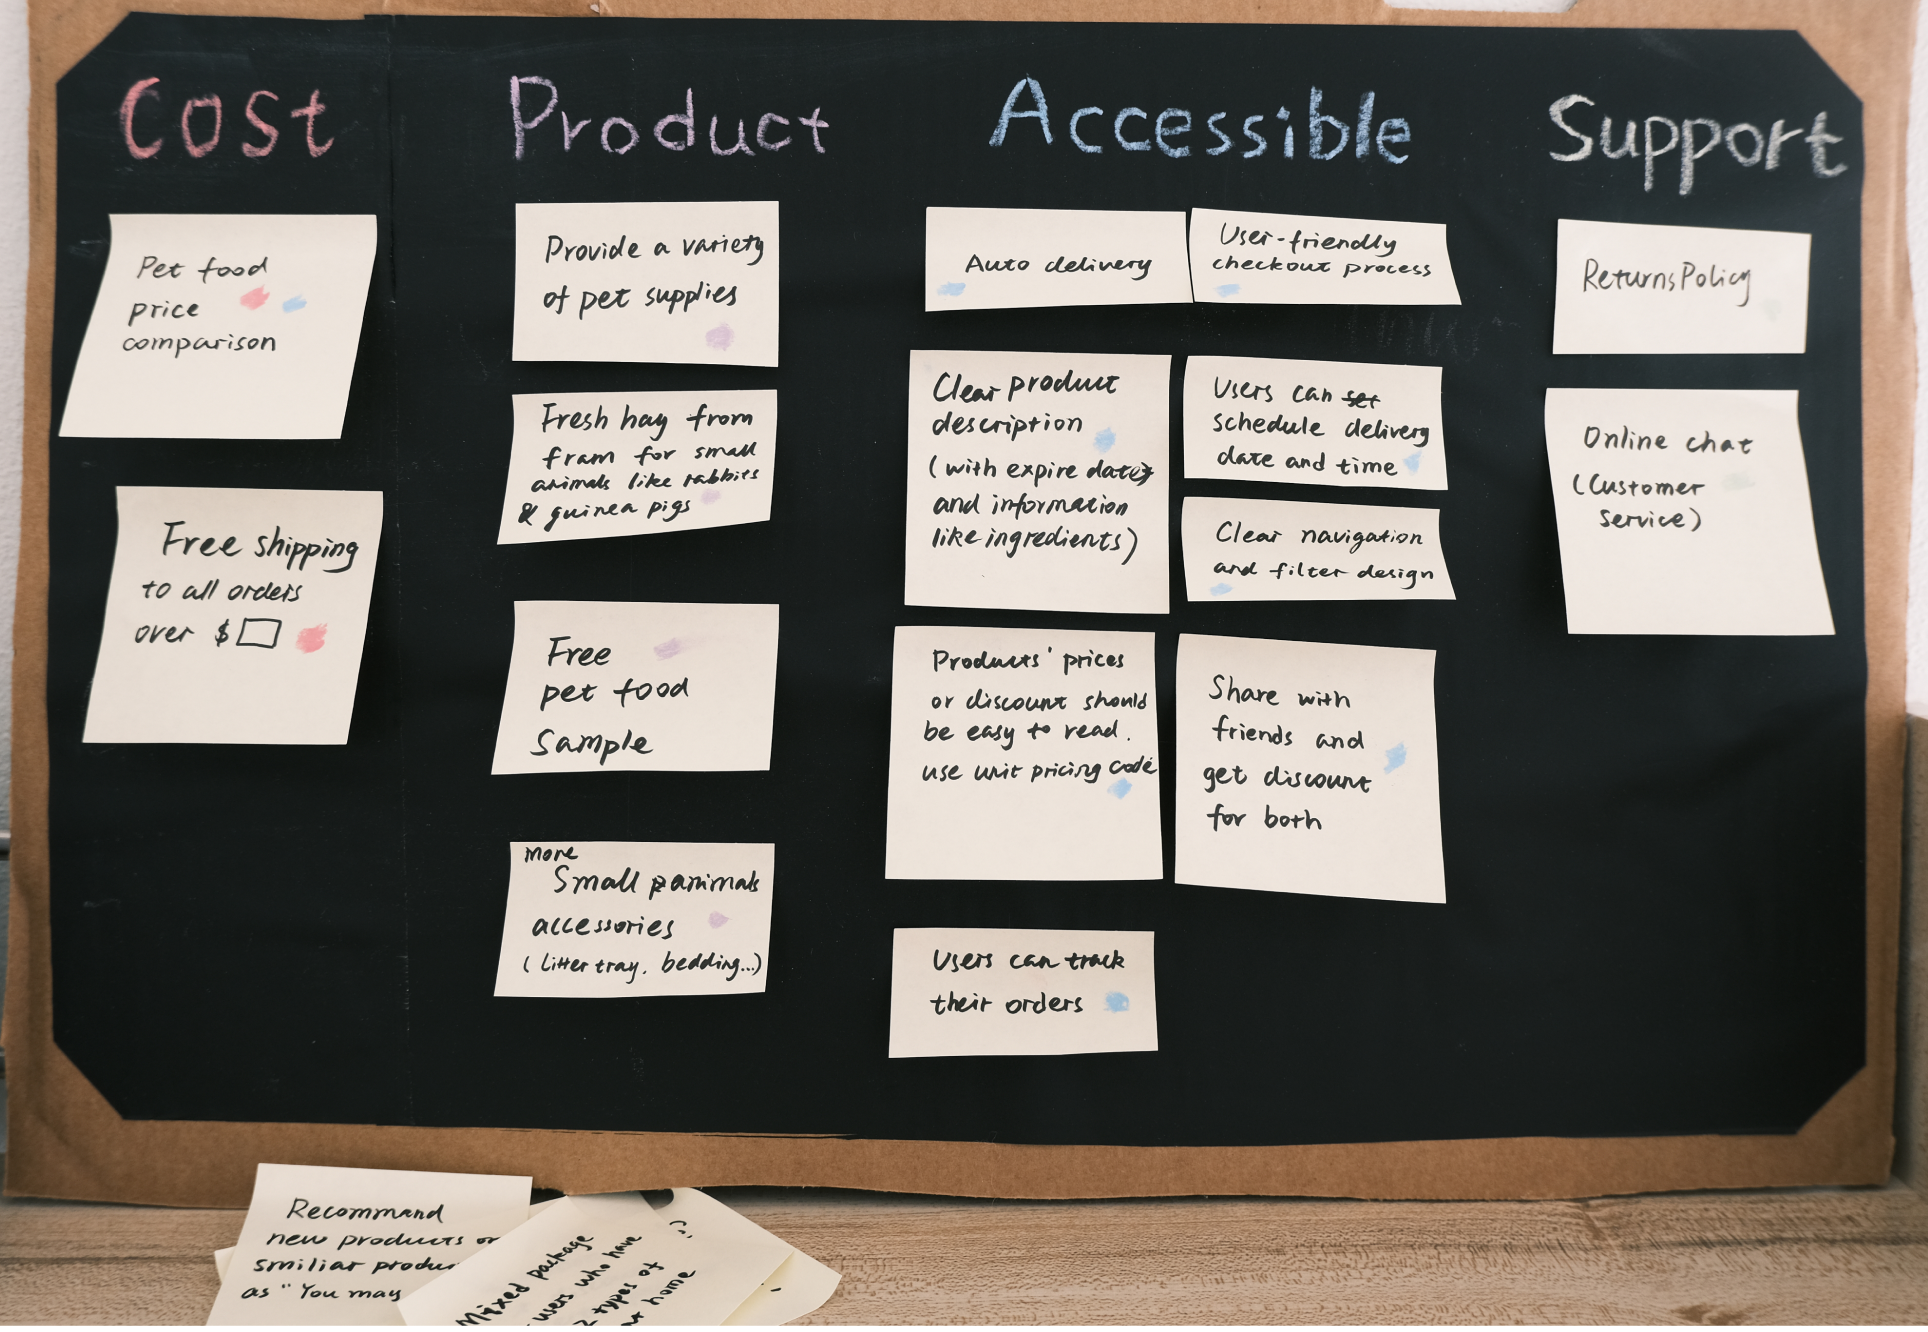 Cost
Product
Accessible
Support
Pet food
price
comparison
Free shipping
to all orders
over $
Provide a variety
of pet supplies
Fresh hay from
fram for small
animals like rabbits
& guinea pigs
Free
pet food
Sample
more
Small animals
accessories
(litter tray, bedding...)
Auto delivery
User-friendly
checkout process
Clear product
description
(with expire dates
and information
like ingredients)
Users can set
schedule delivery
date and time
Clear navigation
and filter design
Products' prices
or discount should
be easy to read.
use unit pricing code
Share with
friends and
get discount
for both
Users can track
their orders
Returns Policy
Online chat
(Customer
service)
Recommand
new products or
smiliar produ
as "You may
Mixed package
users who have
2 types of
at home